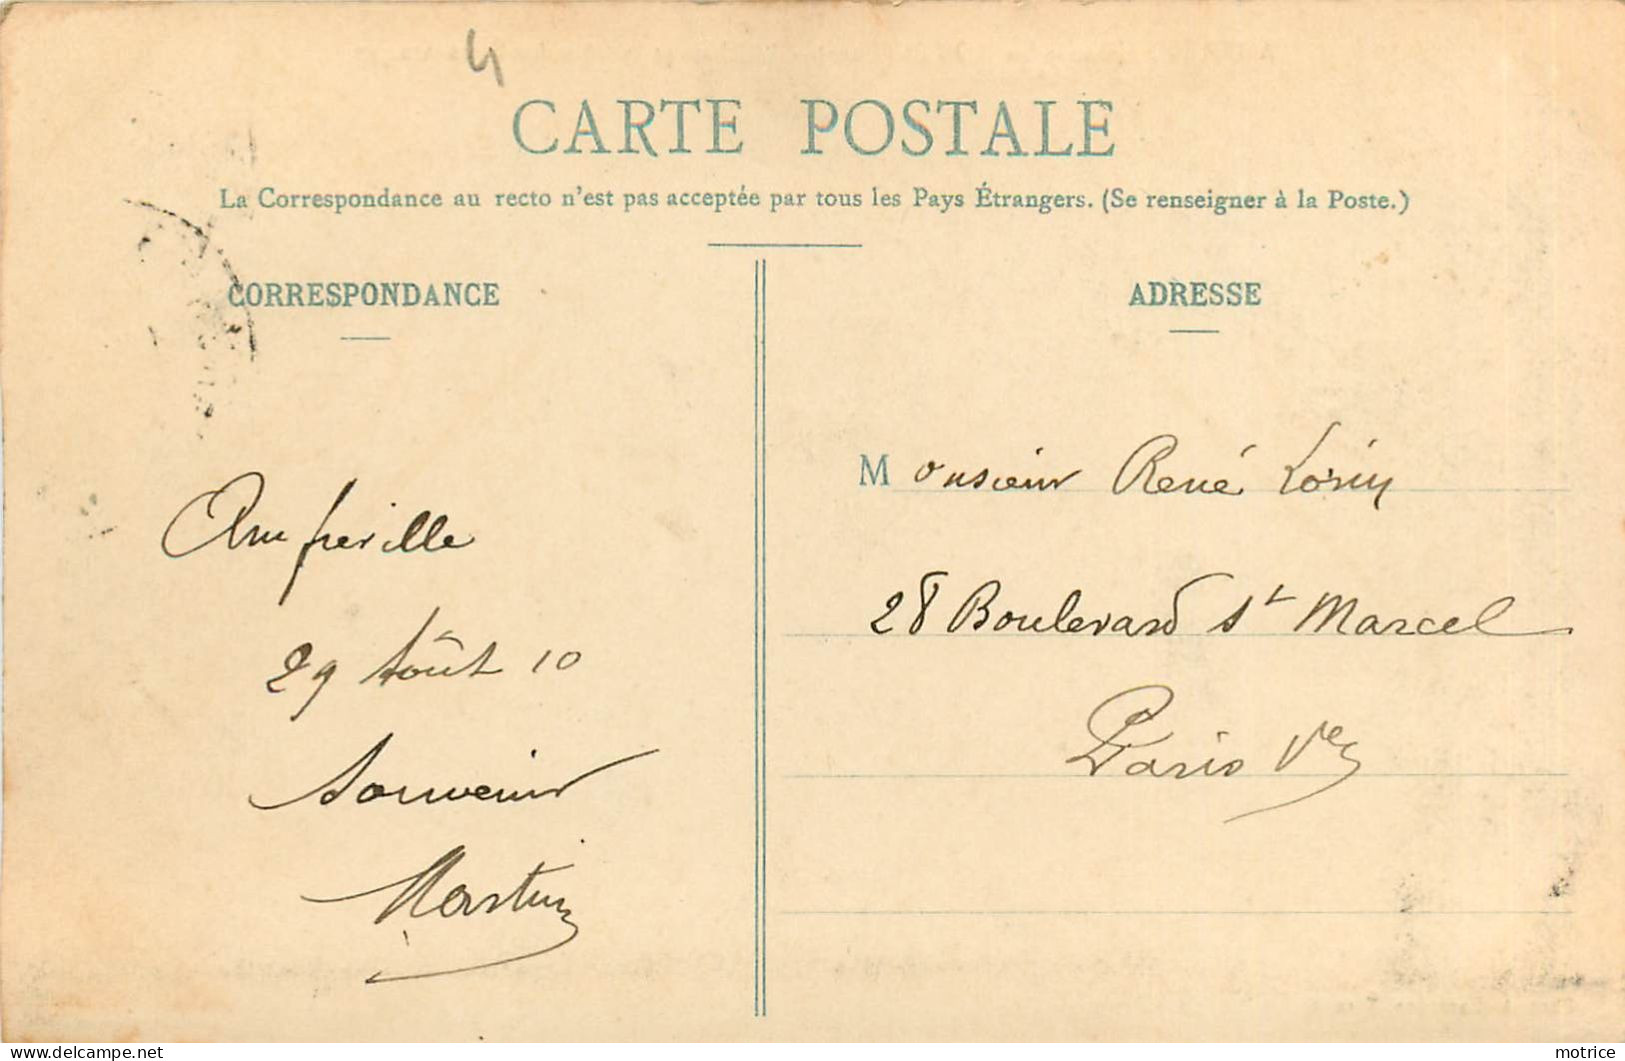 4
CARTE POSTALE
La Correspondance au recto n'est pas acceptée par tous les Pays Étrangers. (Se renseigner à la Poste.)
CORRESPONDANCE
Amfreville
29 Août 10
Souvenir
Martin
ADRESSE
Monsieur René Lorin
28 Boulevard St Marcel
Paris Ve
motrice